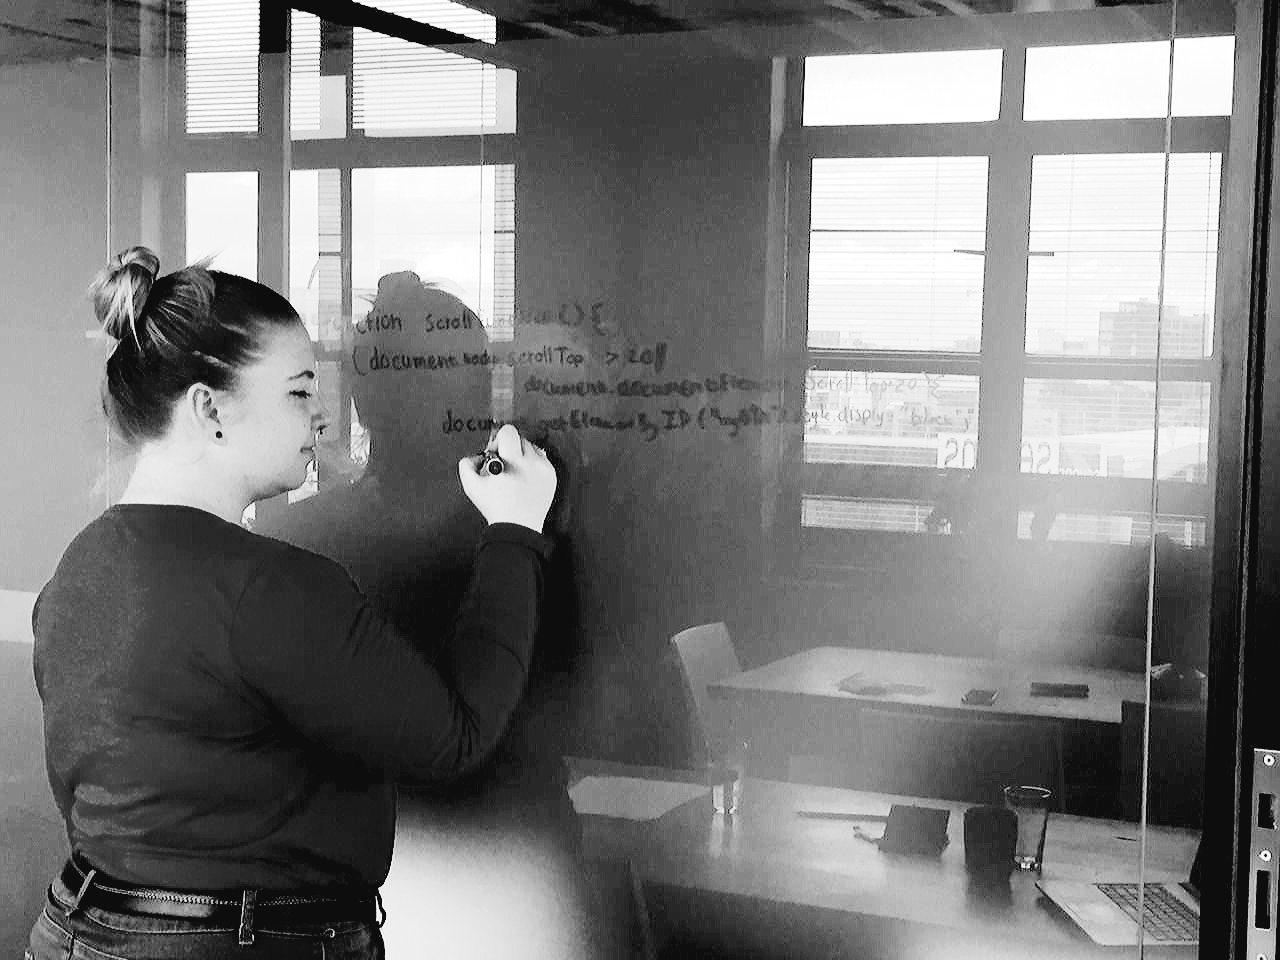 function scrollFunction () {
(document.body.scrollTop > 20 ||
document.documentElement.scrollTop 20 ){
document.getElementByID ("myBtn").style.display = "block";